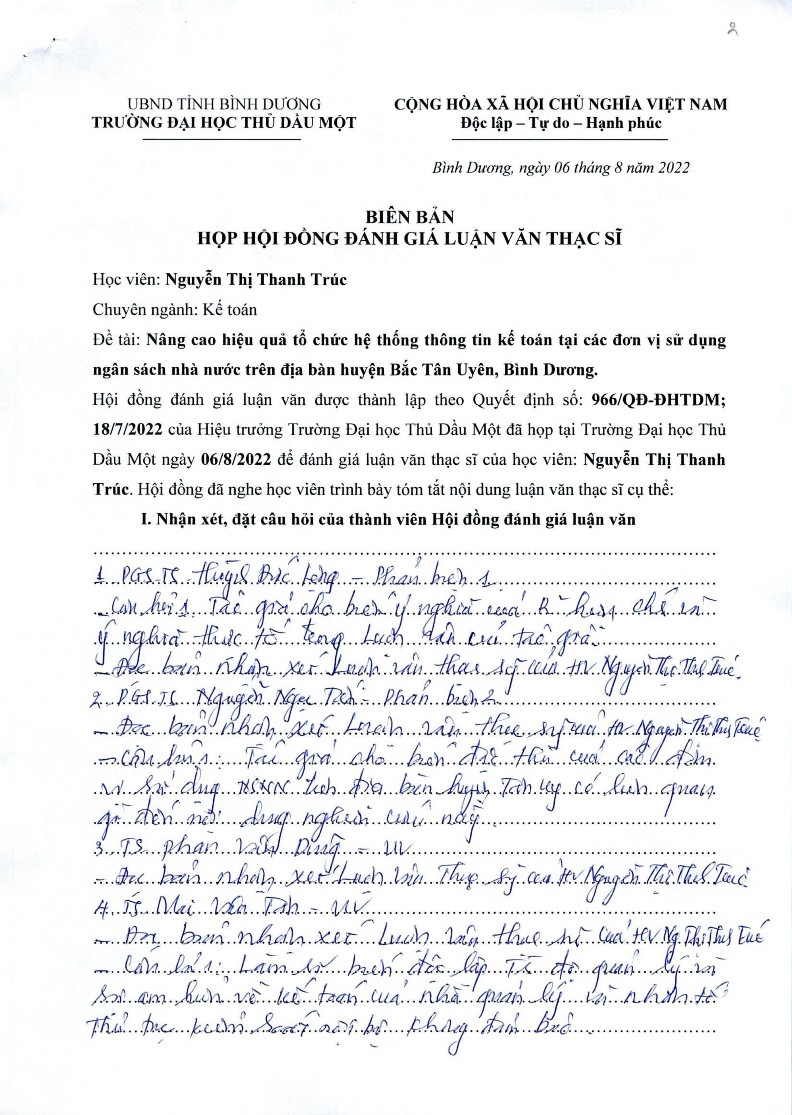 2
UBND TỈNH BÌNH DƯƠNG
TRƯỜNG ĐẠI HỌC THỦ DẦU MỘT
CỘNG HÒA XÃ HỘI CHỦ NGHĨA VIỆT NAM
Độc lập – Tự do – Hạnh phúc
Bình Dương, ngày 06 tháng 8 năm 2022
BIÊN BẢN
HỌP HỘI ĐỒNG ĐÁNH GIÁ LUẬN VĂN THẠC SĨ
Học viên: Nguyễn Thị Thanh Trúc
Chuyên ngành: Kế toán
Đề tài: Nâng cao hiệu quả tổ chức hệ thống thông tin kế toán tại các đơn vị sử dụng
ngân sách nhà nước trên địa bàn huyện Bắc Tân Uyên, Bình Dương.
Hội đồng đánh giá luận văn được thành lập theo Quyết định số: 966/QĐ-ĐHTDM;
18/7/2022 của Hiệu trưởng Trường Đại học Thủ Dầu Một đã họp tại Trường Đại học Thủ
Dầu Một ngày 06/8/2022 để đánh giá luận văn thạc sĩ của học viên: Nguyễn Thị Thanh
Trúc. Hội đồng đã nghe học viên trình bày tóm tắt nội dung luận văn thạc sĩ cụ thể:
I. Nhận xét, đặt câu hỏi của thành viên Hội đồng đánh giá luận văn
1. PGS.TS. Huỳnh Đức Lộng – Phản biện 1
Câu hỏi 1: Tác giả cho biết ý nghĩa của R hiệu chỉnh và
ý nghĩa thực tế trong luận văn của tác giả
– Đọc bản nhận xét luận văn thạc sỹ của HV Nguyễn Thị Trúc
2. PGS.TS. Nguyễn Ngọc – Phản biện 2
– Đọc bản nhận xét luận văn thạc sỹ của HV. Nguyễn Thị Trúc
– Câu hỏi: Tác giả cho biết đặc thù của các đơn
vị sử dụng NSNN trên địa bàn huyện Tân Uy có liên quan
gì đến nội dung nghiên cứu này
3. TS. Phan Văn Dũng – UV
– Đọc bản nhận xét luận văn Thạc sỹ của HV Nguyễn Thị Trúc
4. TS. Mai – UV
– Đọc bản nhận xét luận văn thạc sĩ của HV. Ng. Thị Trúc
– Câu hỏi: biến độc lập quản lý và
sự am hiểu về kế toán của nhà quản lý và nhân tố
kiểm soát nội bộ không đảm bảo